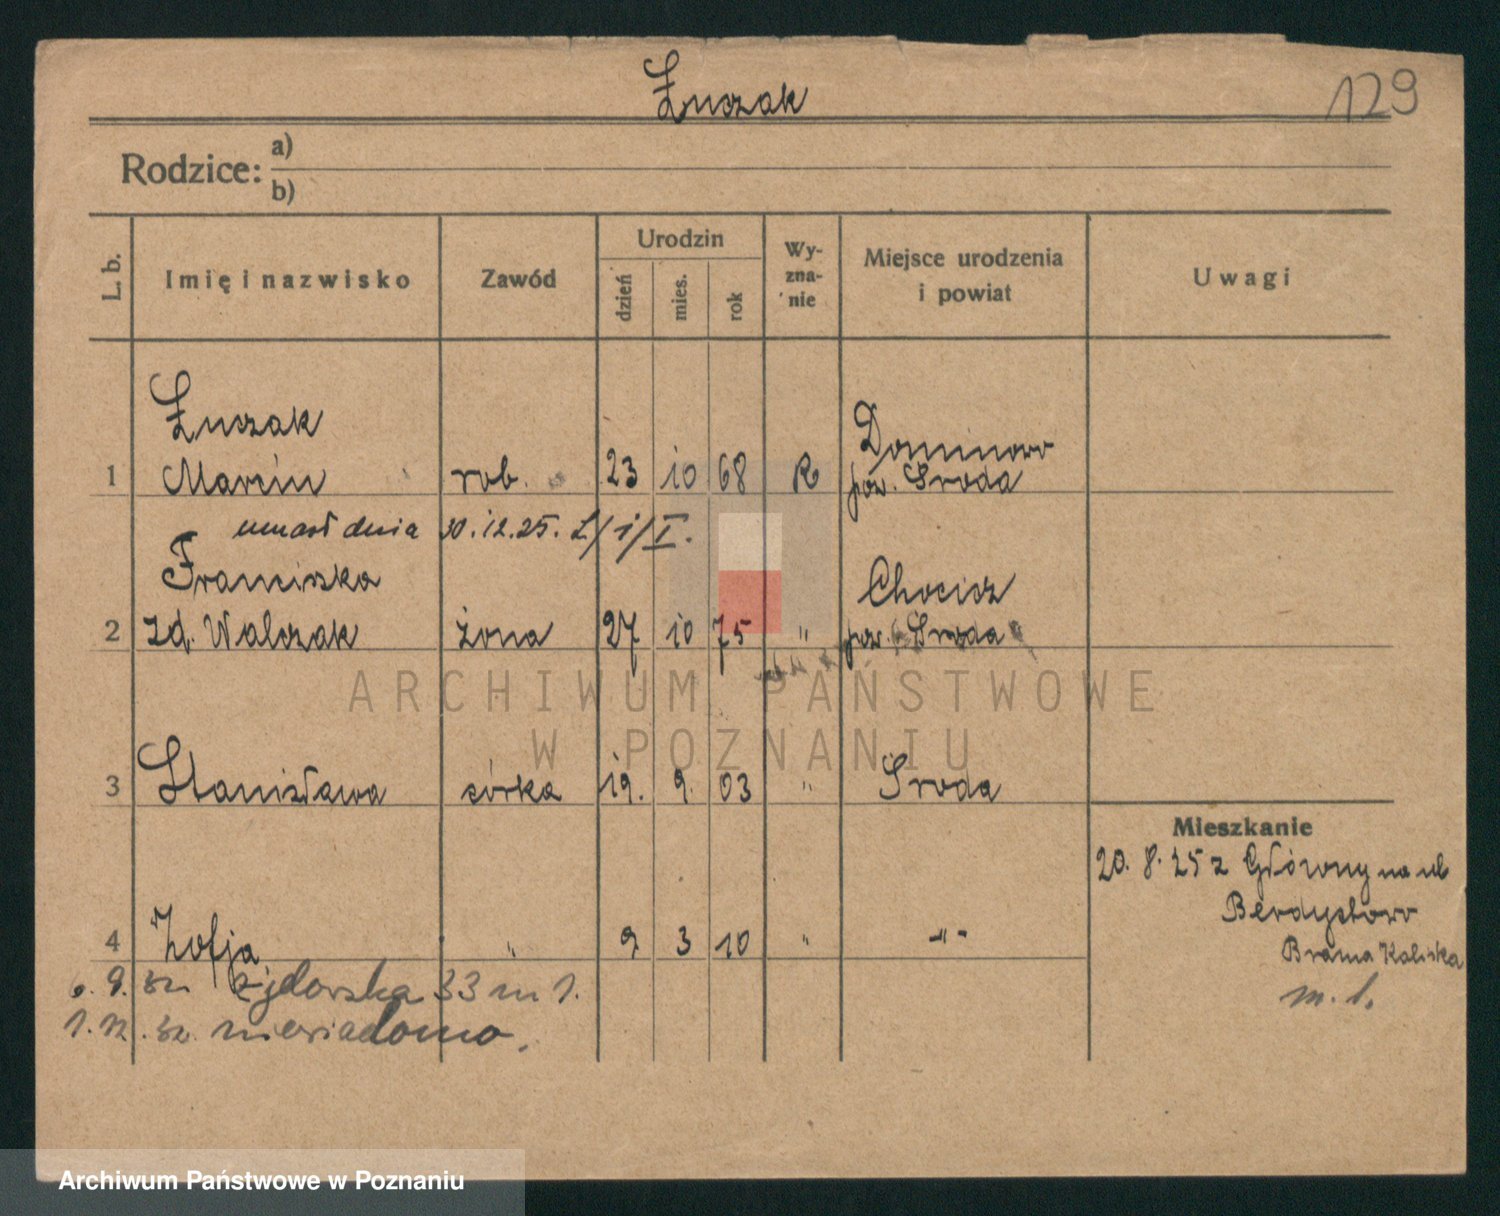 Łuczak
129
Rodzice: a)
b)
L. b. Imię i nazwisko Zawód Urodzin dzień mies. rok Wyznanie Miejsce urodzenia i powiat Uwagi
Łuczak
Dominowo
1 Marcin rob. 23 10 68 R pow. Sroda
umarł dnia 30.12.25. L/1/I.
Franciszka Chocicz
2 zd. Walczak żona 27 10 75 " pow. Sroda
ARCHIWUM PAŃSTWOWE
W POZNANIU
3 Stanisława córka 19. 9. 03 " Sroda
Mieszkanie
20. 8. 25 z Główny na ul
Berdychowo
4 Zofja " 9 3 10 " -"-
Brama Kaliska
6. 9. 32 33 m 1.
m. 1.
1. 12. 32. niewiadomo.
Archiwum Państwowe w Poznaniu